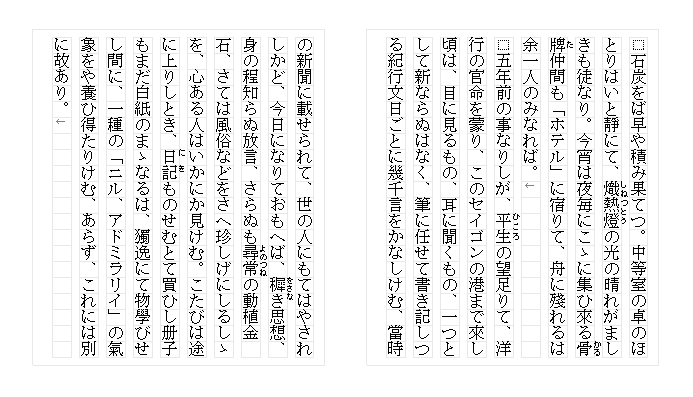 □石炭をば早や積み果てつ。中等室の卓のほ
しねつとう
とりはいと靜にて、熾熱燈の光の晴れがまし
かる
きも徒なり。今宵は夜毎にこゝに集ひ來る骨
た
牌仲間も「ホテル」に宿りて、舟に殘れるは
余一人のみなれば。←
ひごろ
□五年前の事なりしが、平生の望足りて、洋
行の官命を蒙り、このセイゴンの港まで來し
頃は、目に見るもの、耳に聞くもの、一つと
して新ならぬはなく、筆に任せて書き記しつ
る紀行文日ごとに幾千言をかなしけむ、當時
の新聞に載せられて、世の人にもてはやされ
をさな
しかど、今日になりておもへば、穉き思想、
よのつね
身の程知らぬ放言、さらぬも尋常の動植金
石、さては風俗などをさへ珍しげにしるしゝ
を、心ある人はいかにか見けむ。こたびは途
にき
に上りしとき、日記ものせむとて買ひし册子
もまだ白紙のまゝなるは、獨逸にて物學びせ
し間に、一種の「ニル、アドミラリイ」の氣
象をや養ひ得たりけむ、あらず、これには別
に故あり。←